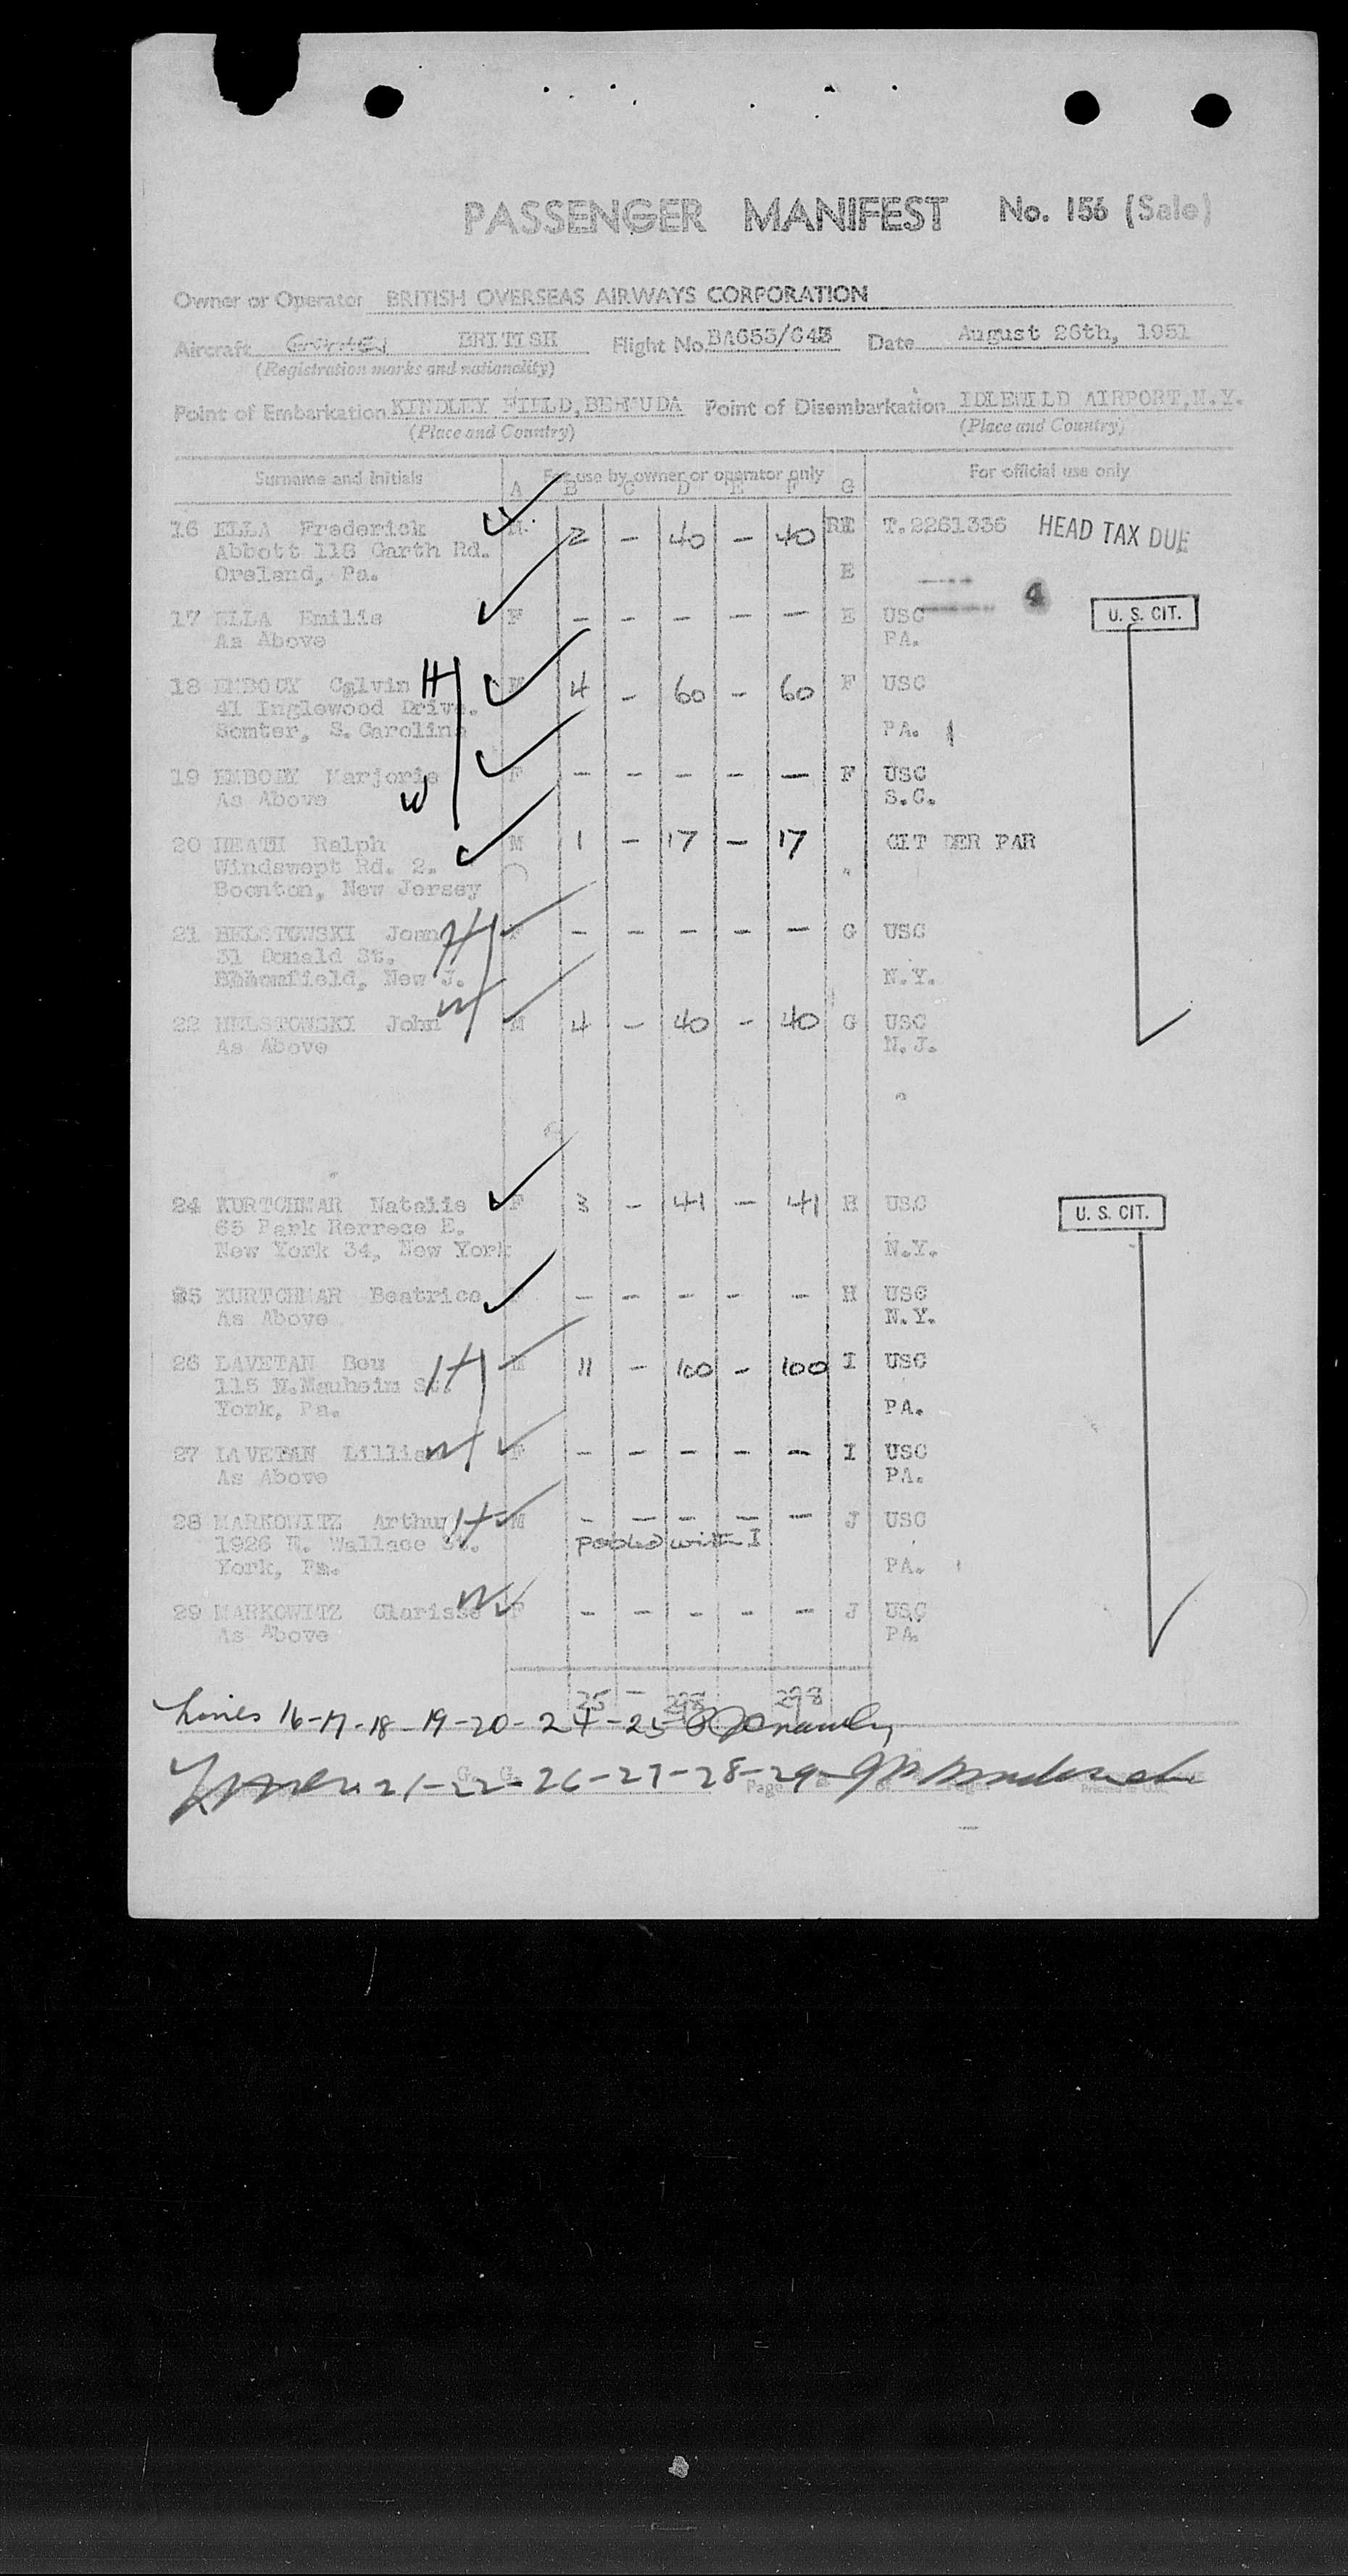 PASSENGER MANIFEST No. 156 (Sale)
Owner or Operator BRITISH OVERSEAS AIRWAYS CORPORATION
Aircraft BRITISH Flight No. BA653/643 Date August 26th, 1951
(Registration marks and nationality)
Point of Embarkation KINDLEY FIELD, BERMUDA Point of Disembarkation IDLEWILD AIRPORT, N.Y.
(Place and Country) (Place and Country)
Surname and Initials For use by owner or operator only For official use only
A B C D E F G
16 ELLA Frederick M. 2 - 40 - 40 RE T.2261336 HEAD TAX DUE
Abbott 118 Garth Rd.
Oreland, Pa. E
4
17 ELLA Emilie F - - - - - E USC U. S. CIT.
As Above PA.
18 EMBODY Calvin H M 4 - 60 - 60 F USC
41 Inglewood Drive.
Somter, S. Carolina PA.
19 EMBODY Marjorie F - - - - - F USC
As Above W S.C.
20 HEATH Ralph M 1 - 17 - 17 CIT DER PAR
Windswept Rd. 2.
Boonton, New Jersey
21 HELSTOWSKI Joan H F - - - - - G USC
31 Donald St.
field, New J. N.Y.
22 HELSTOWSKI John W M 4 - 40 - 40 G USC
As Above N.J.
24 KURTCHMAR Natalie F 3 - 41 - 41 H USC U. S. CIT.
65 Park Rerrece E.
New York 34, New York N.Y.
25 KURTCHMAR Beatrice F - - - - - H USC
As Above N.Y.
26 LAVETAN Beu H M 11 - 100 - 100 I USC
115 N.Mauheim St.
York, Pa. PA.
27 LAVETAN Lillian W F - - - - - I USC
As Above PA.
28 MARKOWITZ Arthur H M - - - - - J USC
1926 W. Wallace St. pooled with I
York, Pa. PA.
29 MARKOWITZ Clarisse W F - - - - - J USC
As Above PA.
25 - 298 298
Lines 16-17-18-19-20-24-25-
Lines 21-22-26-27-28-29-
G. G. Page